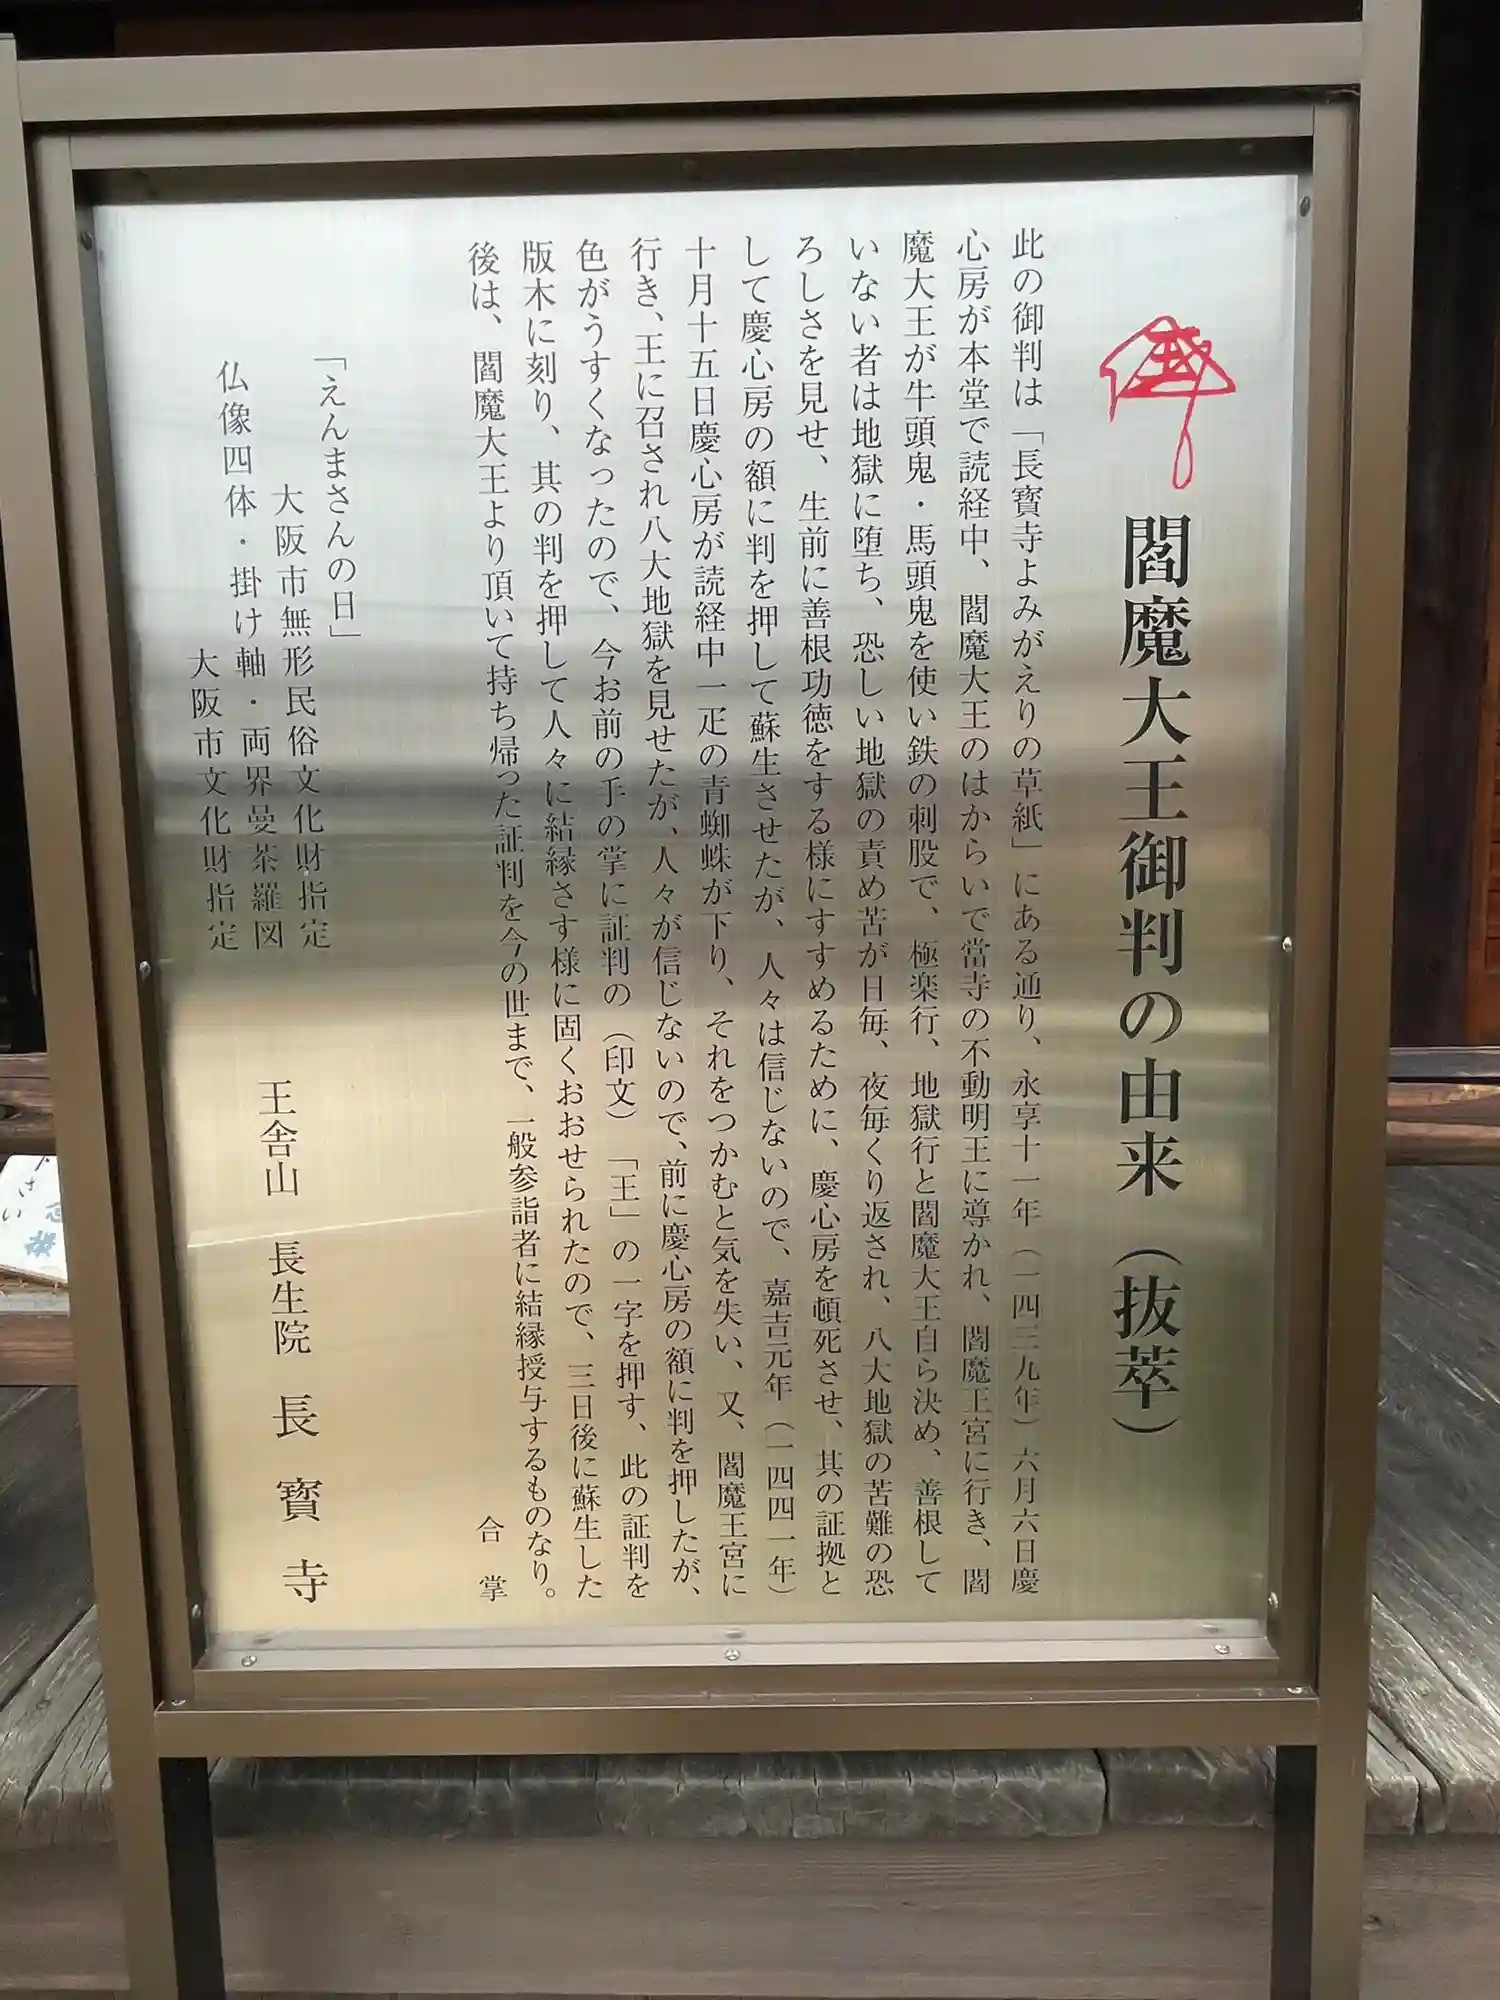 閻魔大王御判の由来（抜萃）
此の御判は「長寳寺よみがえりの草紙」にある通り、永享十一年（一四三九年）六月六日慶
心房が本堂で読経中、閻魔大王のはからいで當寺の不動明王に導かれ、閻魔王宮に行き、閻
魔大王が牛頭鬼・馬頭鬼を使い鉄の刺股で、極楽行、地獄行と閻魔大王自ら決め、善根して
いない者は地獄に堕ち、恐しい地獄の責め苦が日毎、夜毎くり返され、八大地獄の苦難の恐
ろしさを見せ、生前に善根功徳をする様にすすめるために、慶心房を頓死させ、其の証拠と
して慶心房の額に判を押して蘇生させたが、人々は信じないので、嘉吉元年（一四四一年）
十月十五日慶心房が読経中一疋の青蜘蛛が下り、それをつかむと気を失い、又、閻魔王宮に
行き、王に召され八大地獄を見せたが、人々が信じないので、前に慶心房の額に判を押したが、
色がうすくなったので、今お前の手の掌に証判の（印文）「王」の一字を押す、此の証判を
版木に刻り、其の判を押して人々に結縁さす様に固くおおせられたので、三日後に蘇生した
後は、閻魔大王より頂いて持ち帰った証判を今の世まで、一般参詣者に結縁授与するものなり。
合掌
「えんまさんの日」
大阪市無形民俗文化財指定
仏像四体・掛け軸・両界曼荼羅図
大阪市文化財指定
王舎山 長生院 長寳寺